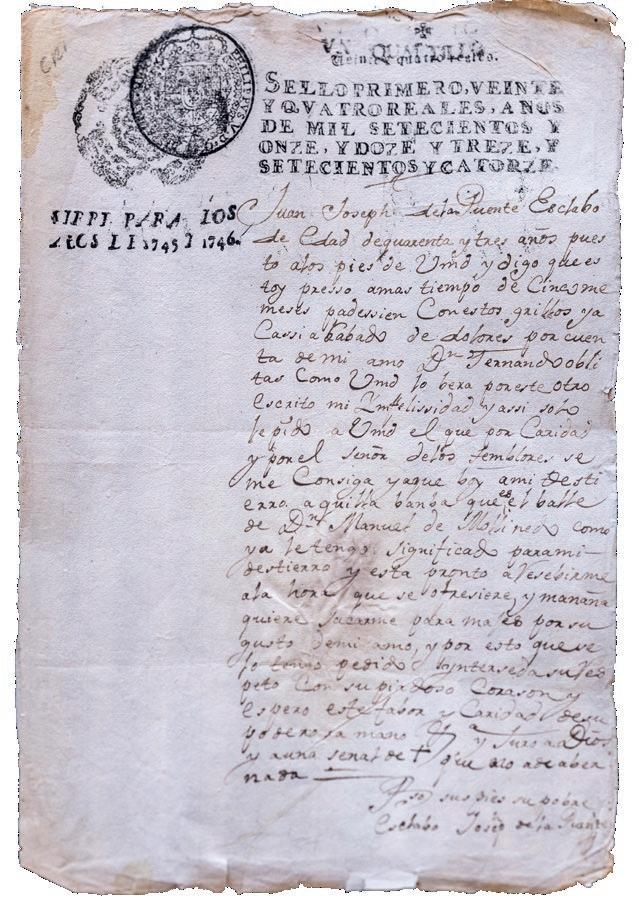 CRI
VN QUARTILLO
Veinte y quatro reales.
SELLO PRIMERO, VEINTE
Y QVATRO REALES, AÑOS
DE MIL SETECIENTOS Y
ONZE, Y DOZE Y TREZE, Y
SETECIENTOS Y CATORZE
PHILIPPUS V
PARA LOS
1745 Y 1746.
Juan Joseph dela Puente Esclabo
de Edad dequarenta y tres años pues
to alos pies de Umd y digo que es
toy presso amas tiempo de Cinco me
meses padessien Con estos grillos ya
Cassi ababado de dolores por cuen
ta de mi amo Dn Fernando obli
tas Como Umd lo bera poreste otro
escrito mi Ynfelissidad y assi solo
le pido a Umd el que por Caridad
y por el señor delos temblores se
me Consiga yaque boy ami desti
erro aquilla banba que es el balle
de Dn Manuel de Mollinedo como
ya le tengo significado parami
destierro y esta pronto a Resebirme
ala hora que se ofresiere, y mañana
quiere sacarme para mages por su
gusto demi amo, y por esto que se
lo tengo pedido Ynterseda su Res
peto Con su piadoso Corason y
espero este fabor y Caridad de su
poderosa mano y Juro a Dios
y a una señal de + que no ade aber
nada
sus pies su pobre
Esclabo Joseph de la Puente